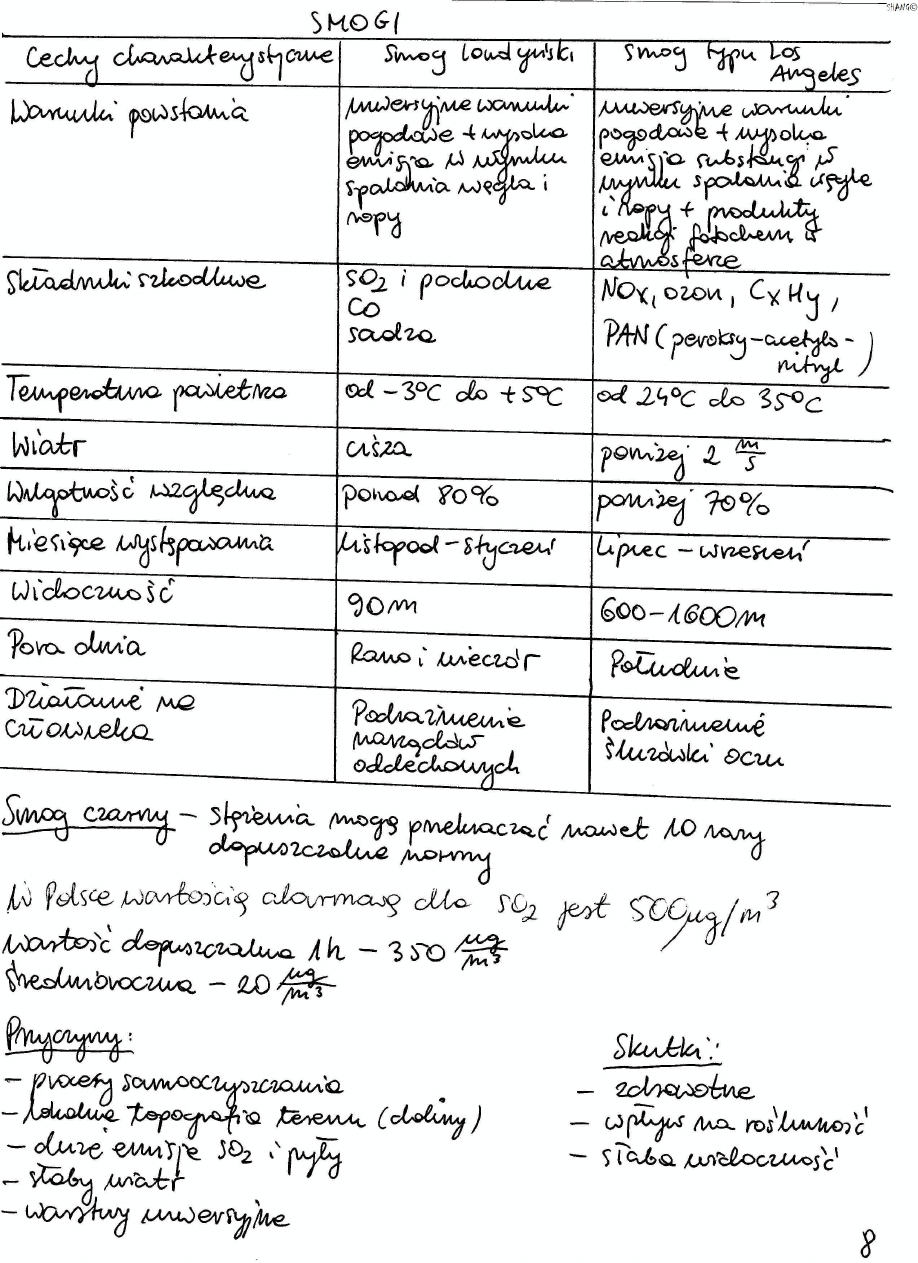 SHANG©
SMOGI
Cechy charakterystyczne
Smog Londyński
Smog typu Los
Angeles
Warunki powstania
inwersyjne warunki
pogodowe + wysoka
emisja w wyniku
spalania węgla i
ropy
inwersyjne warunki
pogodowe + wysoka
emisja substancji w
wyniku spalania węgla
i ropy + produkty
reakcji fotochem w
atmosferze
Składniki szkodliwe
SO2 i pochodne
CO
sadza
NOx, ozon, CxHy,
PAN (peroksy-acetylo-
nitryl)
Temperatura powietrza
od -3°C do +5°C
od 24°C do 35°C
Wiatr
cisza
poniżej 2 m/s
Wilgotność względna
ponad 80%
poniżej 70%
Miesiące występowania
Listopad - styczeń
Lipiec - wrzesień
Widoczność
90m
600-1600m
Pora dnia
Rano i wieczór
Południe
Działanie na
człowieka
Podrażnienie
narządów
oddechowych
Podrażnienie
śluzówki oczu
Smog czarny - stężenia mogą przekraczać nawet 10 razy
dopuszczalne normy
W Polsce wartością alarmową dla SO2 jest 500µg/m3
Wartość dopuszczalna 1h - 350 µg/m3
średnioroczna - 20 µg/m3
Przyczyny:
- procesy samooczyszczania
- lokalna topografia terenu (doliny)
- duże emisje SO2 i pyły
- słaby wiatr
- warstwy inwersyjne
Skutki:
- zdrowotne
- wpływ na roślinność
- słaba widoczność
8